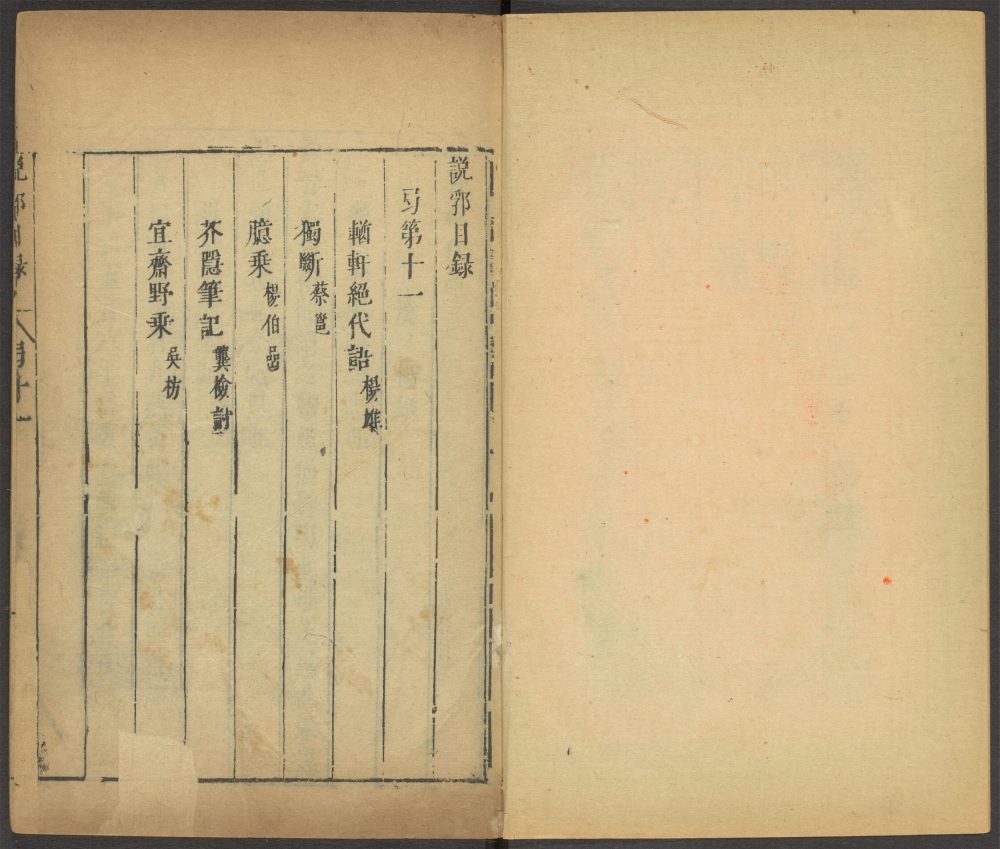 說郛目録
弓第十一
輶軒絕代語 楊雄
獨斷 蔡邕
臆乘 楊伯嵒
芥隱筆記 龔檢討
宜齋野乘 吳枋
說郛目録 弓十一